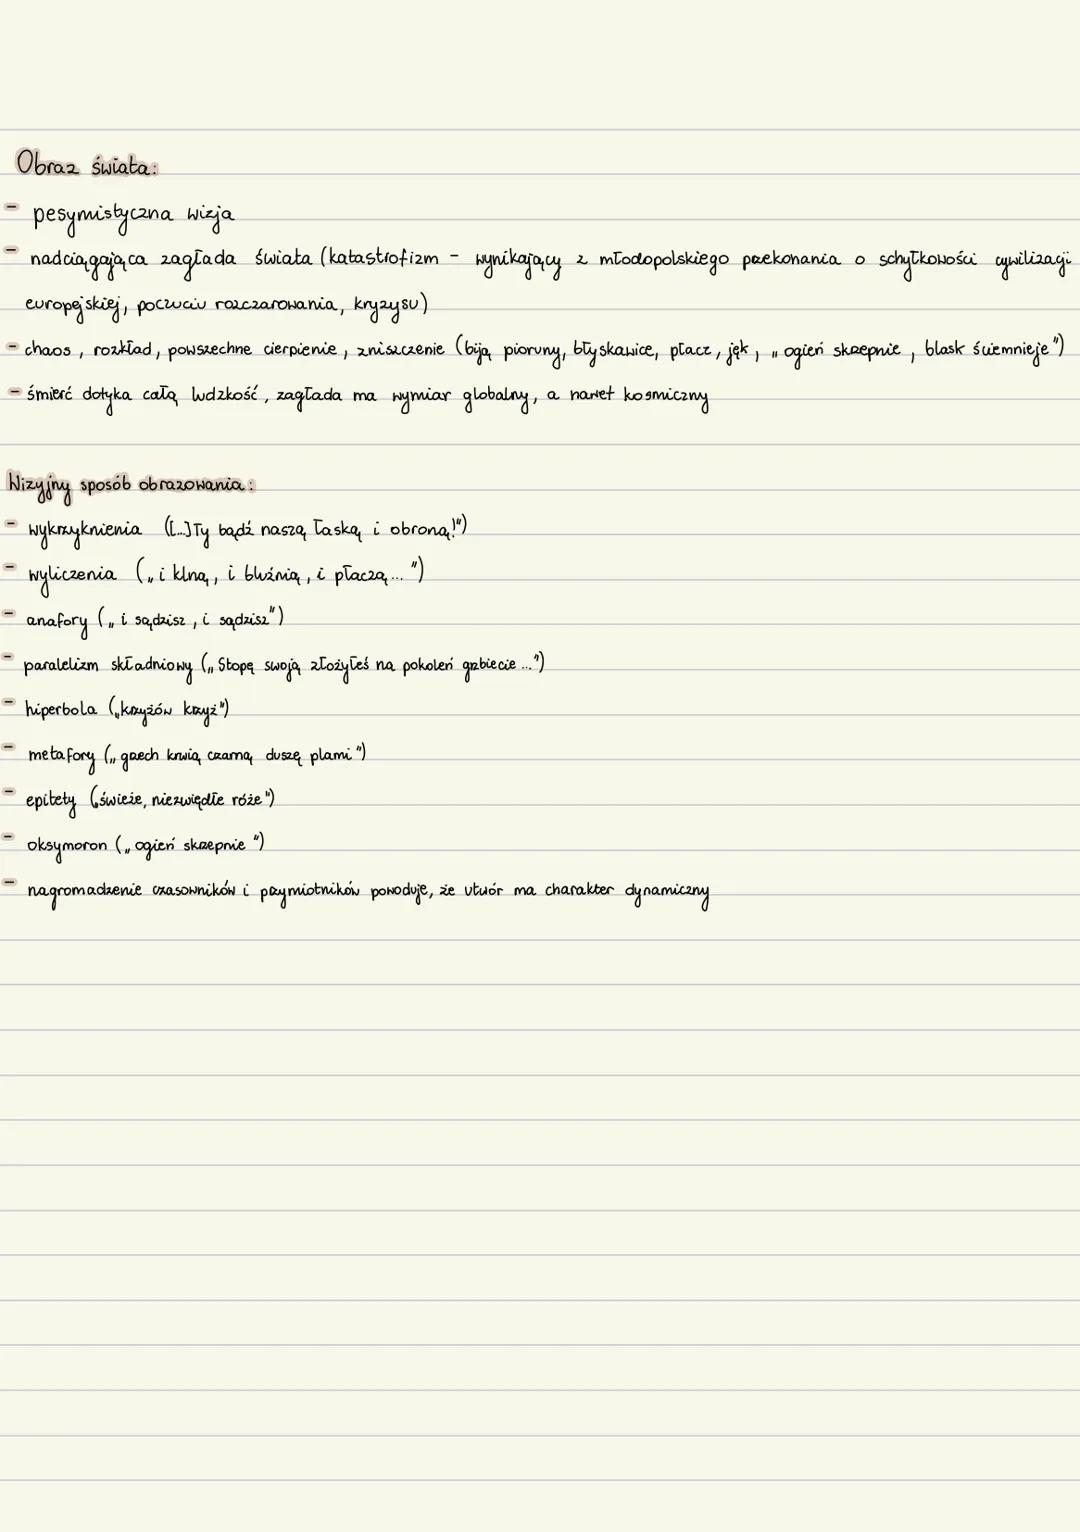 Obraz świata:
- pesymistyczna wizja
- nadciągająca zagłada świata (katastrofizm - wynikający z młodopolskiego przekonania o schyłkowości cywilizacji
europejskiej, poczuciu rozczarowania, kryzysu)
- chaos, rozkład, powszechne cierpienie, zniszczenie (biją pioruny, błyskawice, płacz, jęk, „ogień skrzepnie, blask ściemnieje")
- śmierć dotyka całą ludzkość, zagłada ma wymiar globalny, a nawet kosmiczny
Wizyjny sposób obrazowania:
- wykrzyknienia ([...]Ty bądź naszą łaską i obroną!")
- wyliczenia („i klną, i bluźnią, i płaczą...")
- anafory („i sądzisz, i sądzisz")
- paralelizm składniowy („Stopę swoją złożyłeś na pokoleń grzbiecie...")
- hiperbola („krzyżów krzyż")
- metafory („grzech krwią czarną duszę plami")
- epitety („świeże, niezwiędłe róże")
- oksymoron („ogień skrzepnie")
- nagromadzenie czasowników i przymiotników powoduje, że utwór ma charakter dynamiczny